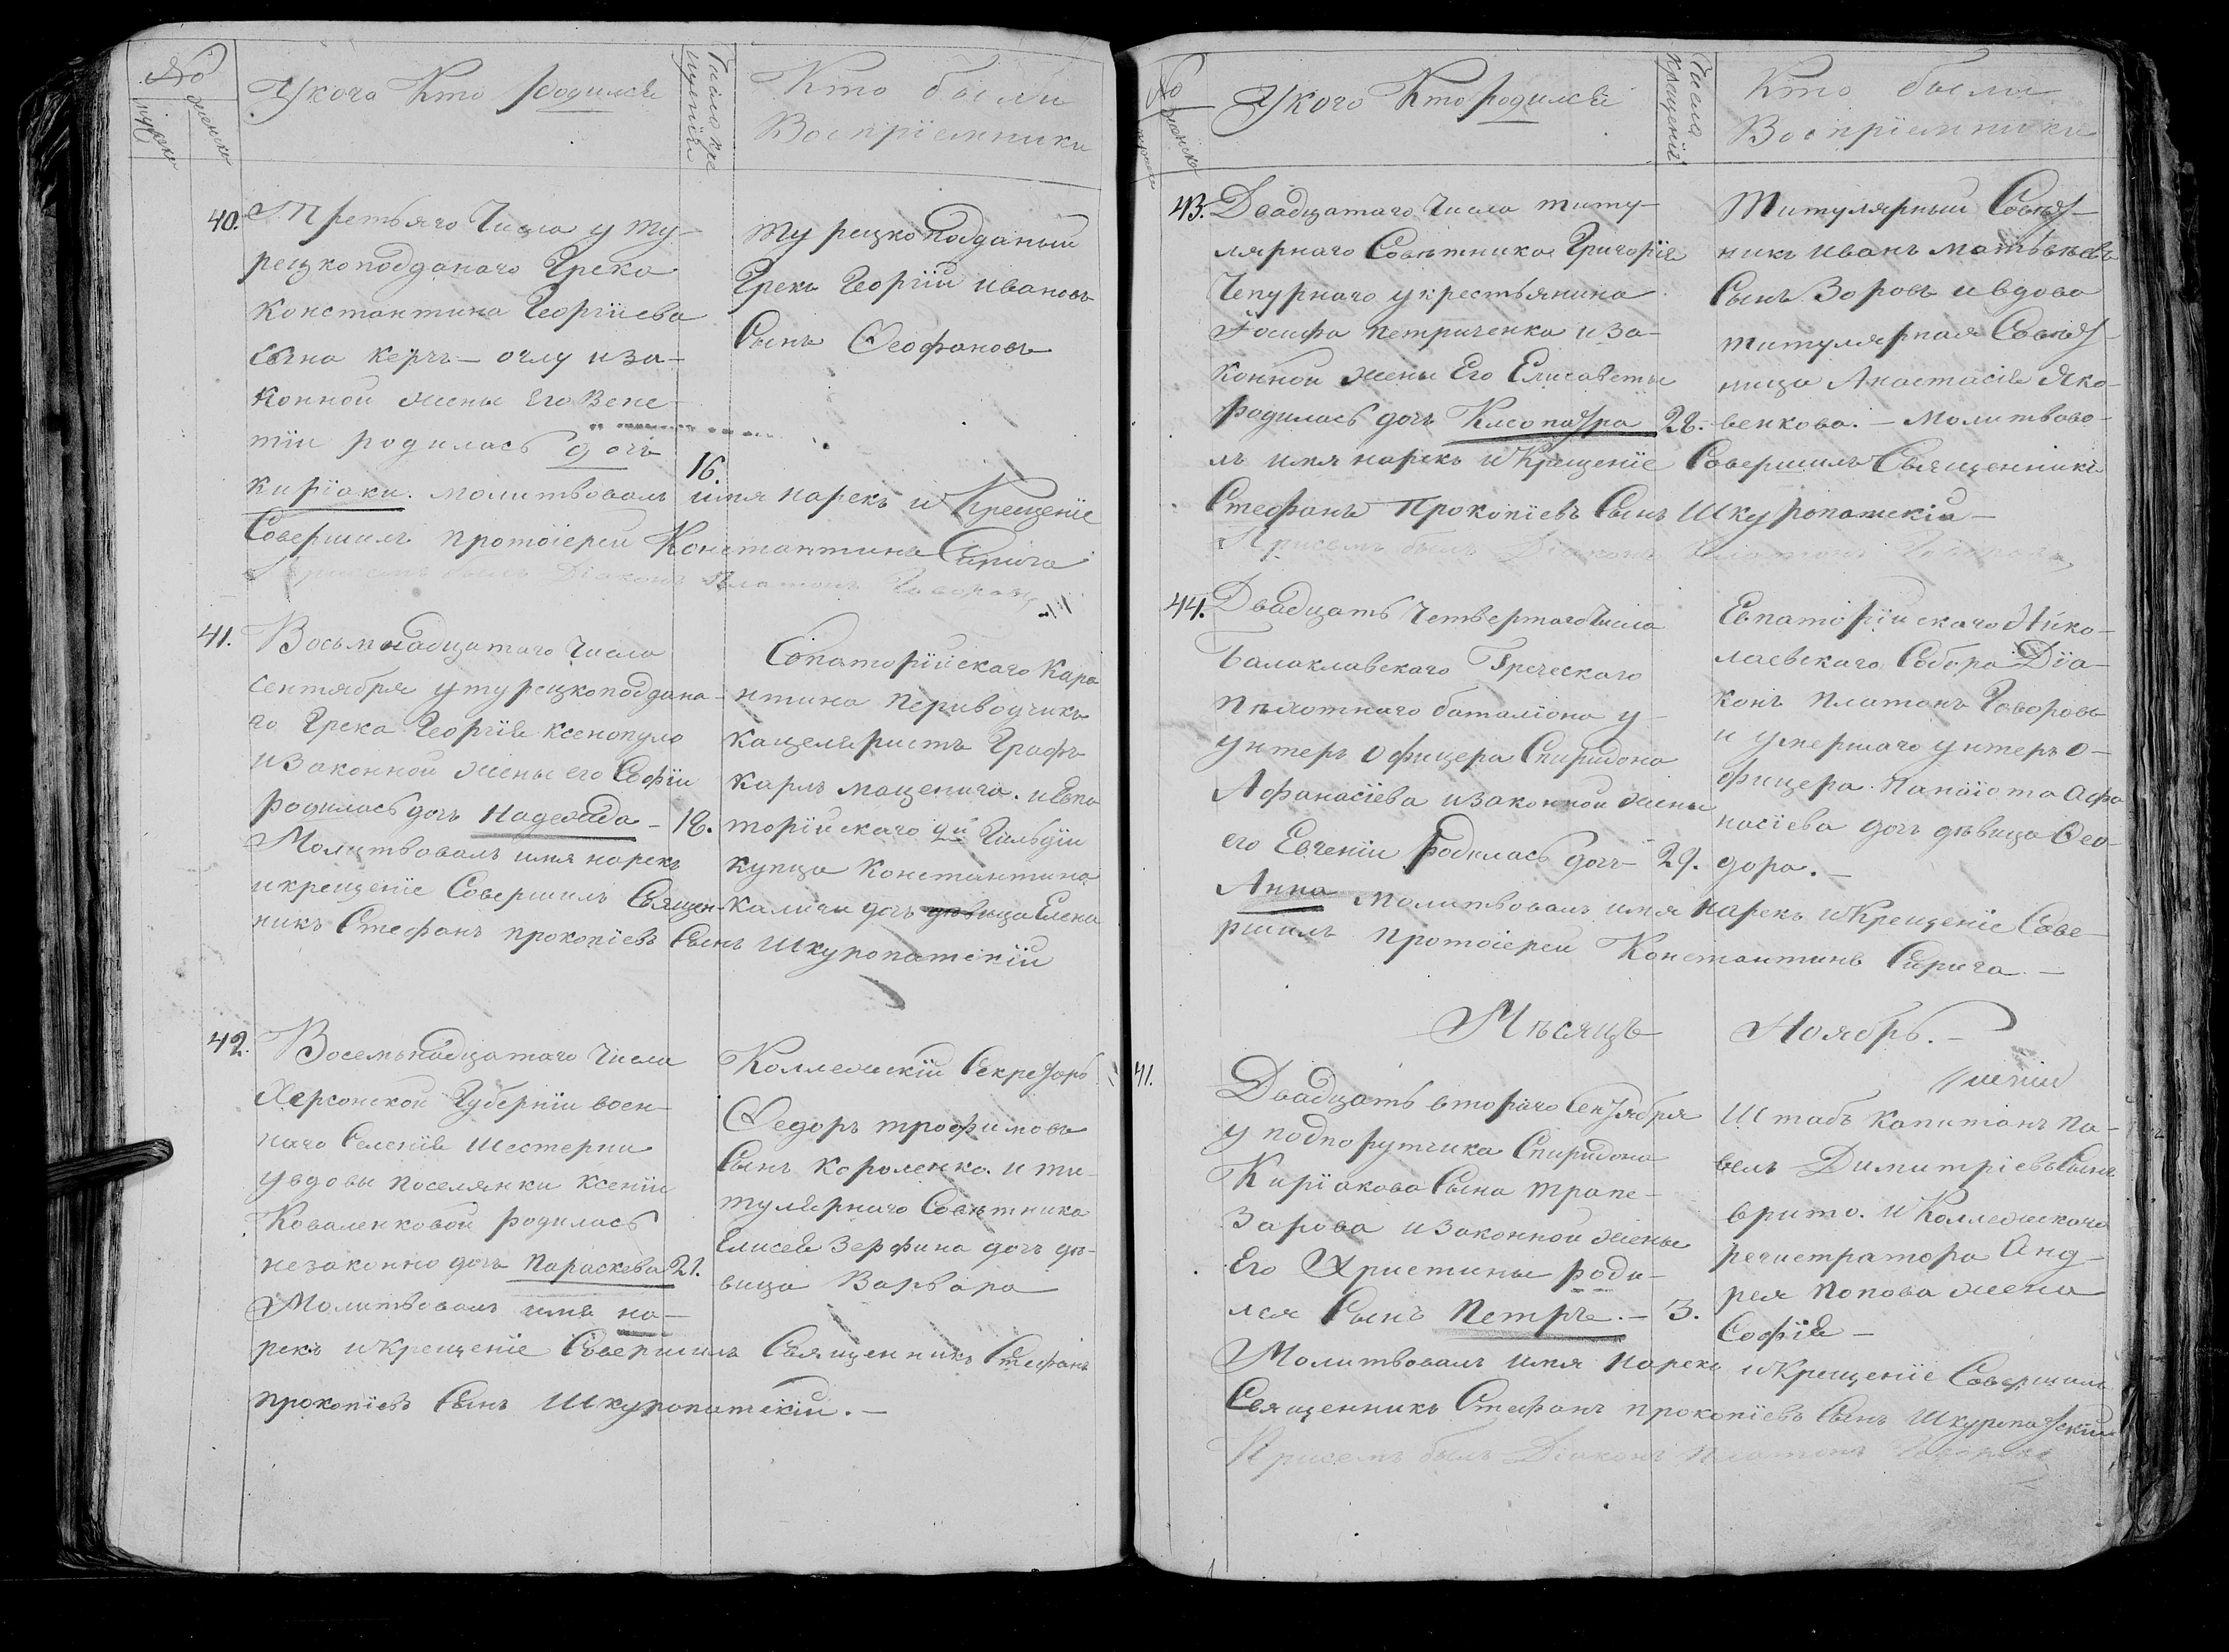 №
мужеска
женска
У кого Кто родился
Число кре
щенiй
Кто были
Восприемники
40.
Третьяго Числа у Ту-
рецкоподданаго Грека
Константина Георгiева
сына Керчь-оглу и за-
конной жены Его Вене-
тiи родилась дочь
16.
Кирiаки. Молитвовалъ имя нарекъ и Крещенiе
Совершилъ протоiерей Константинъ Спирича
Присемъ былъ Дiаконъ Платонъ Говоровъ
Турецкоподданый
Грекъ Георгiй Ивановъ
Сынъ Феофановъ
41.
Восьмнадцатаго Числа
Сентября у турецкоподдана-
го Грека Георгiя Ксенопуло
и законной жены его Софiи
родилась дочь Надежда - 18.
Молитвовалъ имя нарекъ
и крещенiе Совершилъ Священ-
никъ Стефанъ Прокопiевъ Сынъ Шкуропатскiй
Евпаторiйскаго Кара
нтина Периводчикъ
Кацеляристъ Графъ
Карлъ Маценица. и Евпа
торiйскаго 2й Гильдiи
купца Константина
Калиги дочь девица Елена
42.
Восемьнадцатаго Числа
Херсонской Губернiи воен-
наго Селенiя Шестерни
у вдовы поселянки Ксенiи
Коваленковой родилась
незаконно дочь Параскева 21.
Молитвовалъ имя на-
рекъ и крещенiе Совершилъ Священникъ Стефанъ
Прокопiевъ Сынъ Шкуропатскiй. -
Коллежскiй Секретарь
Федоръ Трофимовъ
Сынъ Короленко. и ти-
тулярнаго Советника
Елисея Зерфина дочь де-
вица Варвара
№
мужеска
женска
У кого Кто родился
Числа
крещенiй
Кто были
Восприемники
43.
Двадцатаго Числа титу-
лярнаго Советника Григорiя
Чепурнаго у крестьянина
Iосифа Петриченка и за-
конной жены Его Елисаветы
родилась дочь Клеопатра 28.
лъ имя нарекъ и Крещенiе Совершилъ Священникъ
Стефанъ Прокопiевъ Сынъ Шкуропатскiй -
Присемъ былъ Дiаконъ Платонъ Говоровъ
Титулярный Совет-
никъ Иванъ Матвеевъ
Сынъ Зоровъ и вдова
титулярная Совет-
ница Анастасiя Яко-
венкова. - Молитвова-
44.
Двадцать Четвертаго Числа
Балаклавскаго Греческаго
Пехотнаго баталiона у
унтеръ Офицера Спиридона
Афанасiева и законной жены
его Евгенiи родилась дочь - 29.
Анна Молитвовалъ имя нарекъ и Крещенiе Сове-
ршилъ протоiерей Константинъ Спирича -
Евпаторiйскаго Нико-
лаевскаго Собора Дiа-
конъ Платонъ Говоровъ
и умершаго унтеръ о-
фицера Панаiота Афа
насiева дочь девица Фео-
дора. -
Месяцъ Ноябрь. -
41.
Двадцать втораго Сентября
у подпорутчика Спиридона
Кирiакова Сына Трапе-
Зарова и законной жены
Его Христины роди-
лся Сынъ Петръ. - 3.
Молитвовалъ имя нарекъ и Крещенiе Совершилъ
Священникъ Стефанъ Прокопiевъ Сынъ Шкуропатскiй
Присемъ былъ Дiаконъ Платонъ Говоровъ
Штабъ Капитанъ Па-
велъ Димитрiевъ Сынъ
Врито. и Коллежскаго
регистратора Анд-
рея Попова жена
Софiя -